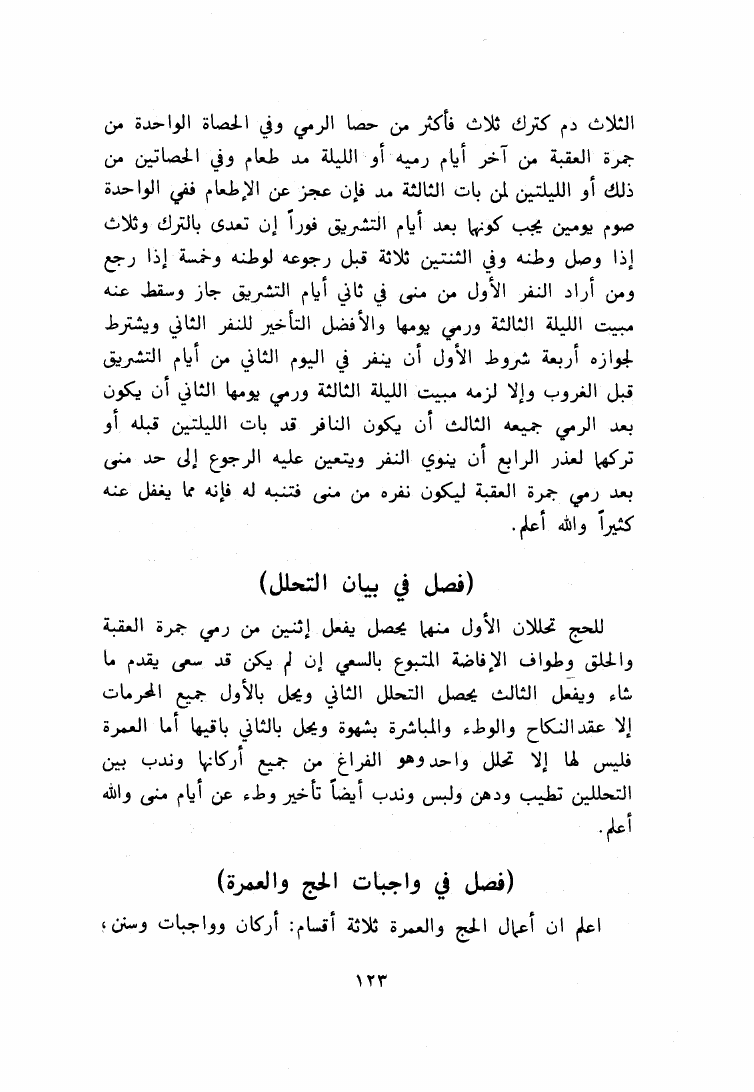 الثلاث دم كترك ثلاث فأكثر من حصا الرمي وفي الحصاة الواحدة من
جمرة العقبة من آخر أيام رميه أو الليلة مد طعام وفي الحصاتين من
ذلك أو الليلتين لمن بات الثالثة مد فإن عجز عن الإطعام ففي الواحدة
صوم يومين يجب كونها بعد أيام التشريق فوراً إن تعدى بالترك وثلاث
إذا وصل وطنه وفي الثنتين ثلاثة قبل رجوعه لوطنه وخمسة إذا رجع
ومن أراد النفر الأول من منى في ثاني أيام التشريق جاز وسقط عنه
مبيت الليلة الثالثة ورمي يومها والأفضل التأخير للنفر الثاني ويشترط
لجوازه أربعة شروط الأول أن ينفر في اليوم الثاني من أيام التشريق
قبل الغروب وإلا لزمه مبيت الليلة الثالثة ورمي يومها الثاني أن يكون
بعد الرمي جميعه الثالث أن يكون النافر قد بات الليلتين قبله أو
تركها لعذر الرابع أن ينوي النفر ويتعين عليه الرجوع إلى حد منى
بعد رمي جمرة العقبة ليكون نفره من منى فتنبه له فإنه مما يغفل عنه
كثيراً والله أعلم.
(فصل في بيان التحلل)
للحج تحللان الأول منها يحصل يفعل إثنين من رمي جمرة العقبة
والحلق وطواف الإفاضة المتبوع بالسعي إن لم يكن قد سعى يقدم ما
شاء ويفعل الثالث يحصل التحلل الثاني ويحل بالأول جميع المحرمات
إلا عقد النكاح والوطء والمباشرة بشهوة ويحل بالثاني باقيها أما العمرة
فليس لها إلا تحلل واحد وهو الفراغ من جميع أركانها وندب بين
التحللين تطيب ودهن ولبس وندب أيضاً تأخير وطء عن أيام منى والله
أعلم.
(فصل في واجبات الحج والعمرة)
اعلم ان أعمال الحج والعمرة ثلاثة أقسام: أركان وواجبات وسنن،
١٢٣